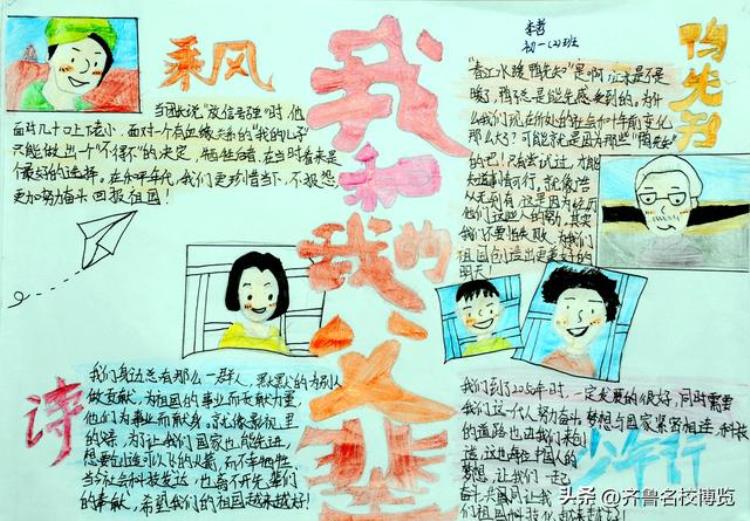 乘风
当团长说"放信号弹"时,他
面对几十口上下老小,面对一个有血缘关系的"我的儿子"
只能做出一个"不得不"的决定,牺牲自者,在当时看来是
个最好的选择。在和平年代,我们更珍惜当下,不报怨,
更加努力奋斗回报祖国!
我和我的父辈
李哲
初一(2)班
鸭先知
"春江水暖鸭先知"是啊,江水是不是
暖了,鸭总是能先感受到的。为什
么我们现在所处的社会和十年前变化
那么大了?可能就是因为那些"鸭先知"
的巴!只有尝试过,才能
知道到底可行。就像
从无到有,这是因为
他们这些人的努力,其实
我们不要怕失败,为我们
祖国创造出更美好的
明天!
诗
我们身边总有那么一群人,默默的为别人
做贡献,为祖国的事业而贡献力量,
他们为事业而献身。就像影视里
的
为了让我们国家也能先进,
想要创造可以飞的火箭,而不幸牺牲
当今社会科技发达,也离不开先辈们
的奉献,希望我们的祖国越来越好!
少年行
我们到了2050年时,一定发展的很好,同时需要
我们这一代人努力奋斗。梦想与国家紧密相连,科技
的道路也进我们来创
造,这也是每中国人的
梦想,让我们一起
奋斗,共同
让我
们祖国
越来越好!
头条 @齐鲁名校博览